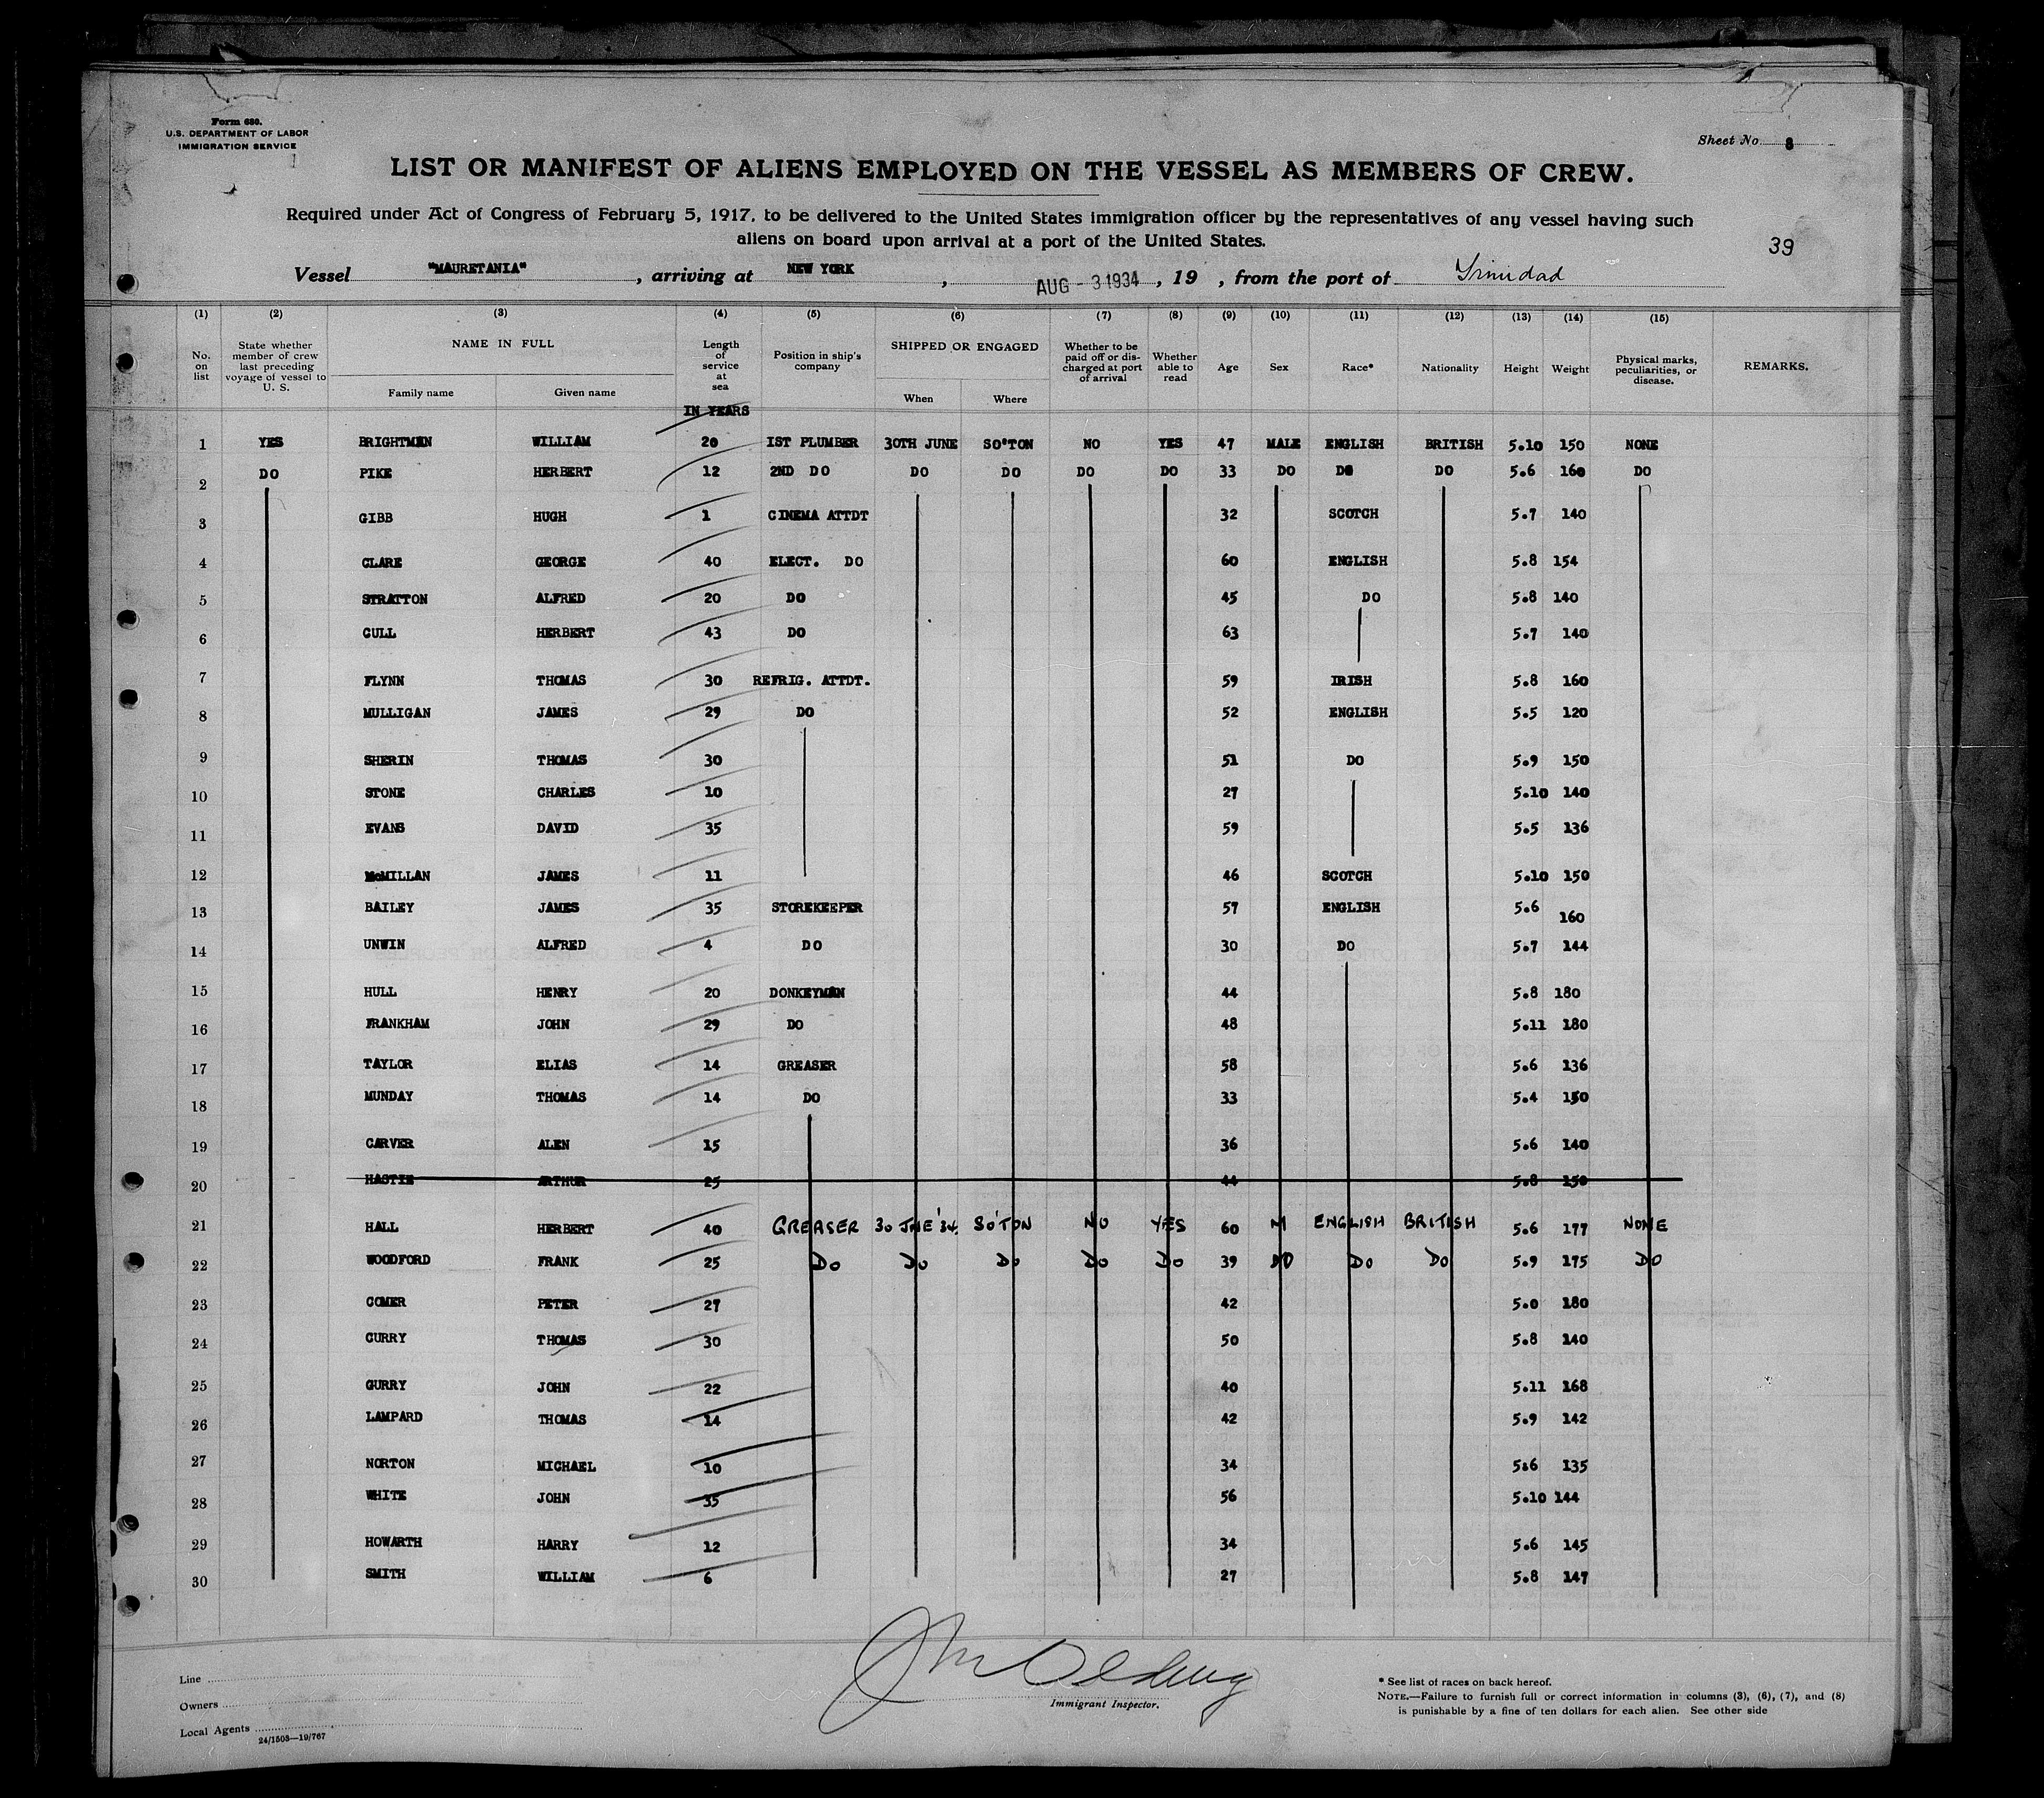 Form 680.
U.S. DEPARTMENT OF LABOR
IMMIGRATION SERVICE
Sheet No. 8
LIST OR MANIFEST OF ALIENS EMPLOYED ON THE VESSEL AS MEMBERS OF CREW.
Required under Act of Congress of February 5, 1917, to be delivered to the United States immigration officer by the representatives of any vessel having such
aliens on board upon arrival at a port of the United States.
39
Vessel "MAURETANIA", arriving at NEW YORK, AUG - 3 1934, 19 , from the port of Trinidad
(1) (2) (3) (4) (5) (6) (7) (8) (9) (10) (11) (12) (13) (14) (15)
No. on list State whether member of crew last preceding voyage of vessel to U. S. NAME IN FULL Family name Given name Length of service at sea Position in ship's company SHIPPED OR ENGAGED When Where Whether to be paid off or discharged at port of arrival Whether able to read Age Sex Race* Nationality Height Weight Physical marks, peculiarities, or disease. REMARKS.
IN YEARS
1 YES BRIGHTMAN WILLIAM 20 1ST PLUMBER 30TH JUNE SO'TON NO YES 47 MALE ENGLISH BRITISH 5.10 150 NONE
2 DO PIKE HERBERT 12 2ND DO DO DO DO DO 33 DO DO DO 5.6 160 DO
3 GIBB HUGH 1 CINEMA ATTDT 32 SCOTCH 5.7 140
4 CLARE GEORGE 40 ELECT. DO 60 ENGLISH 5.8 154
5 STRATTON ALFRED 20 DO 45 DO 5.8 140
6 CULL HERBERT 43 DO 63 5.7 140
7 FLYNN THOMAS 30 REFRIG. ATTDT. 59 IRISH 5.8 160
8 MULLIGAN JAMES 29 DO 52 ENGLISH 5.5 120
9 SHERIN THOMAS 30 51 DO 5.9 150
10 STONE CHARLES 10 27 5.10 140
11 EVANS DAVID 35 59 5.5 136
12 McMILLAN JAMES 11 46 SCOTCH 5.10 150
13 BAILEY JAMES 35 STOREKEEPER 57 ENGLISH 5.6 160
14 UNWIN ALFRED 4 DO 30 DO 5.7 144
15 HULL HENRY 20 DONKEYMAN 44 5.8 180
16 FRANKHAM JOHN 29 DO 48 5.11 180
17 TAYLOR ELIAS 14 GREASER 58 5.6 136
18 MUNDAY THOMAS 14 DO 33 5.4 150
19 CARVER ALEN 15 36 5.6 140
20 HASTIE ARTHUR 25 44 5.8 150
21 HALL HERBERT 40 GREASER 30 JNE '34. SO'TON NO YES 60 M ENGLISH BRITISH 5.6 177 NONE
22 WOODFORD FRANK 25 DO DO DO DO DO 39 DO DO DO 5.9 175 DO
23 COMER PETER 27 42 5.0 180
24 CURRY THOMAS 30 50 5.8 140
25 GURRY JOHN 22 40 5.11 168
26 LAMPARD THOMAS 14 42 5.9 142
27 NORTON MICHAEL 10 34 5.6 135
28 WHITE JOHN 35 56 5.10 144
29 HOWARTH HARRY 12 34 5.6 145
30 SMITH WILLIAM 6 27 5.8 147
Line
Owners
Local Agents
24/1503—19/767
Immigrant Inspector.
* See list of races on back hereof.
NOTE.—Failure to furnish full or correct information in columns (3), (6), (7), and (8)
is punishable by a fine of ten dollars for each alien. See other side